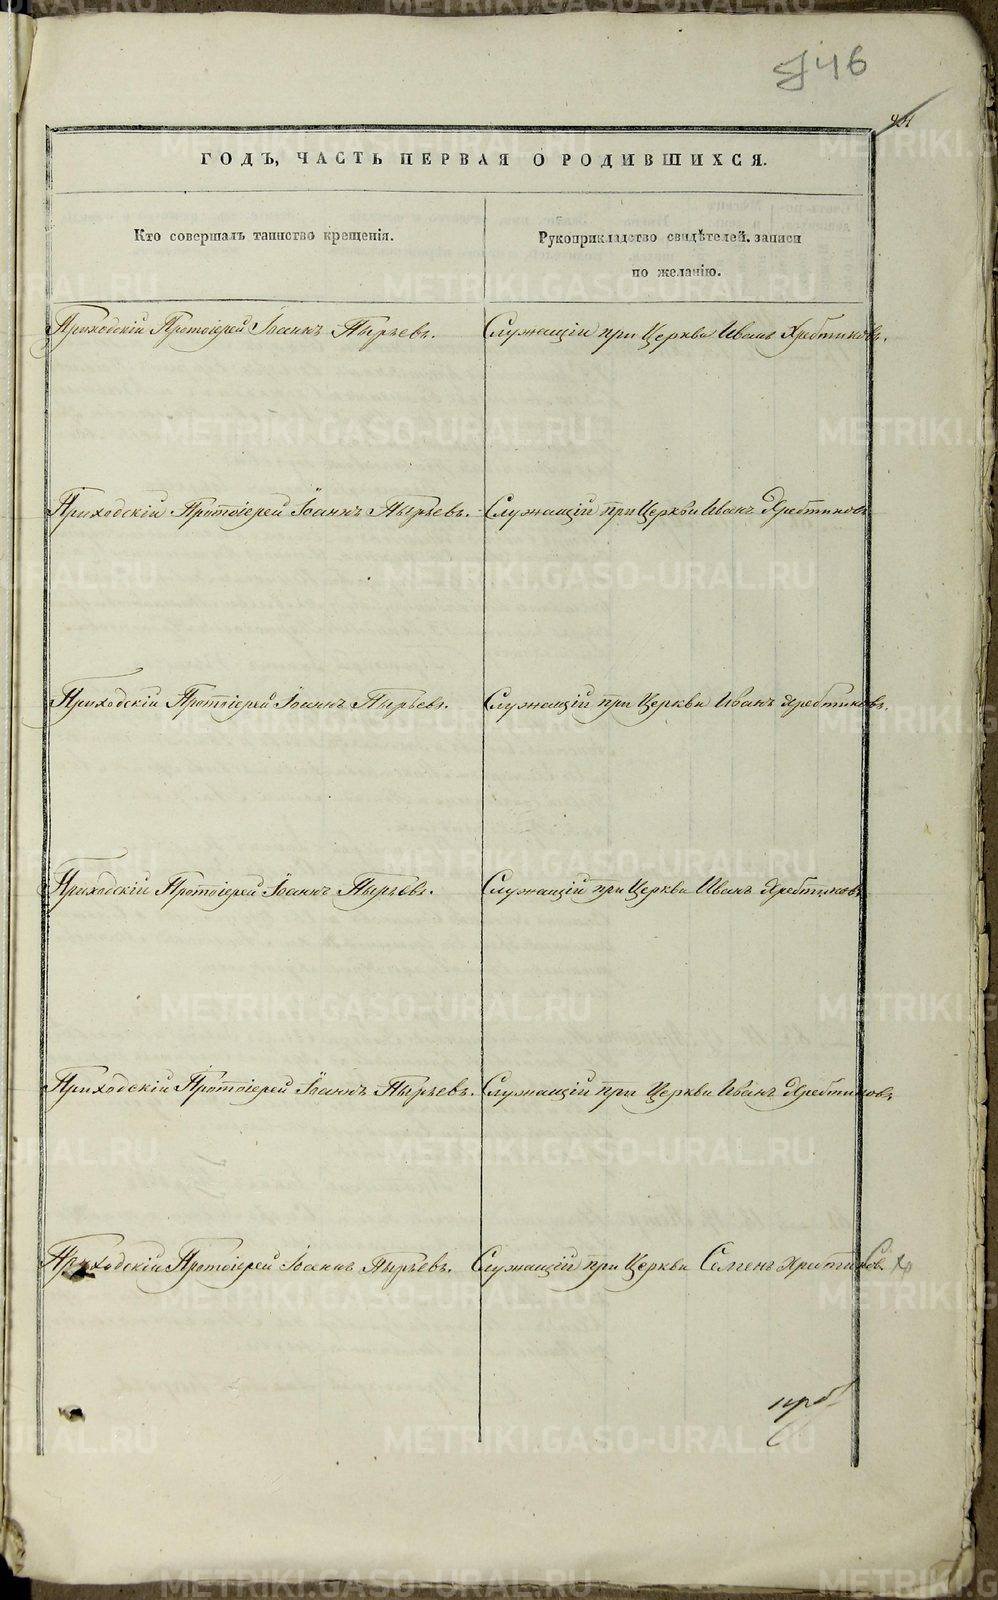 46
ГОДЪ, ЧАСТЬ ПЕРВАЯ О РОДИВШИХСЯ.
Кто совершалъ таинство крещенія.
Рукоприкладство свидѣтелей записи
по желанію.
Приходскій Протоіерей Іоаннъ Пырьевъ. Служащій при Церкви Иванъ Хребтиковъ.
Приходскій Протоіерей Іоаннъ Пырьевъ. Служащій при Церкви Иванъ Хребтиковъ
Приходскій Протоіерей Іоаннъ Пырьевъ. Служащій при Церкви Иванъ Хребтиковъ.
Приходскій Протоіерей Іоаннъ Пырьевъ. Служащій при Церкви Иванъ Хребтиковъ
Приходскій Протоіерей Іоаннъ Пырьевъ. Служащій при Церкви Иванъ Хребтиковъ.
Приходскій Протоіерей Іоаннъ Пырьевъ. Служащій при Церкви Семенъ Хребтиковъ
METRIKI.GASO-URAL.RU